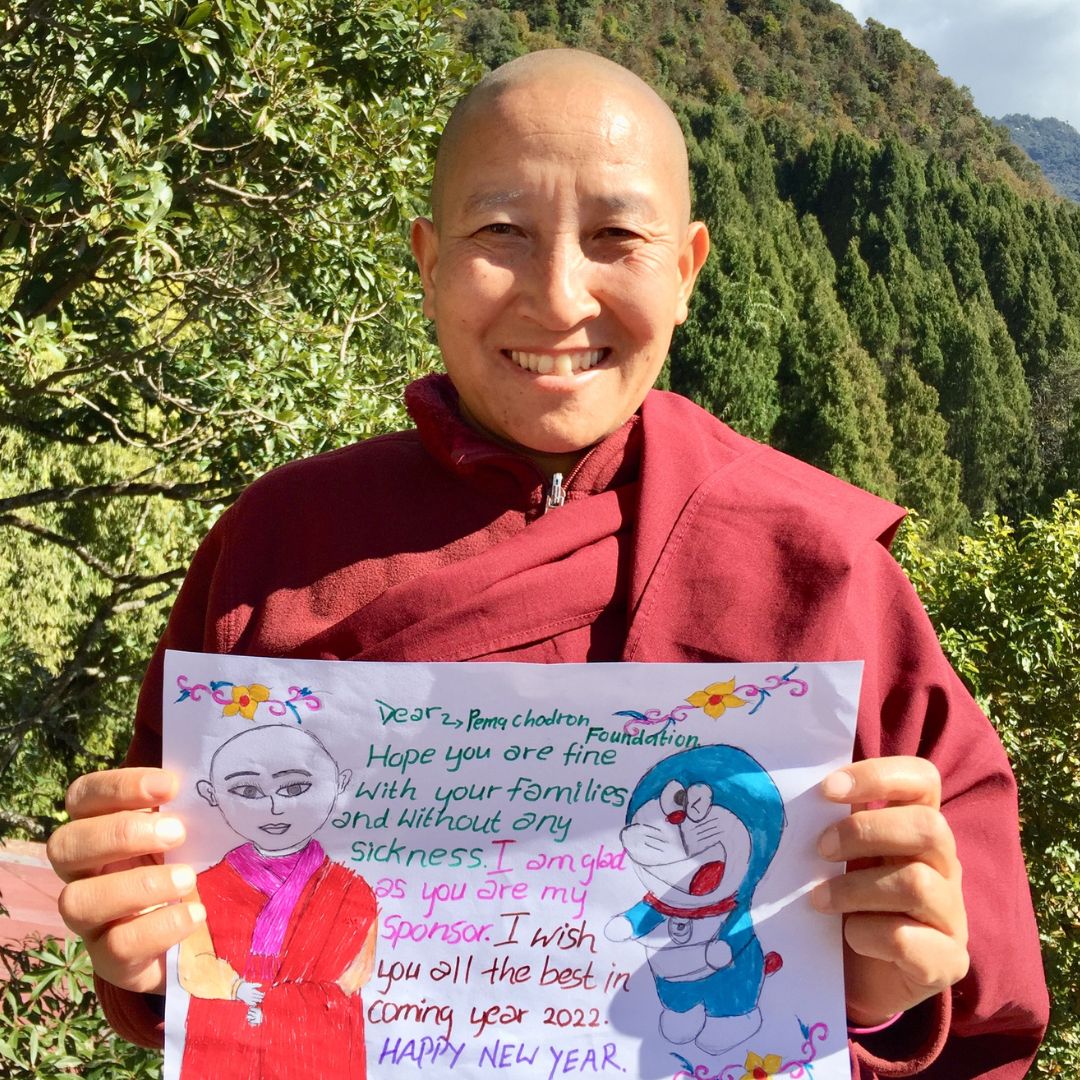 Dear 2, Pema Chodron
Foundation
Hope you are fine
with your families
and without any
sickness. I am glad
as you are my
sponsor. I wish
you all the best in
coming year 2022.
HAPPY NEW YEAR.